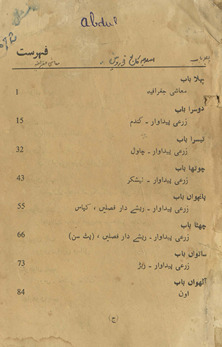 abdul
فہرست
پہلا باب
معاشی جغرافیہ 1
دوسرا باب
زرعی پیداوار ۔ گندم 15
تیسرا باب
زرعی پیداوار ۔ چاول 32
چوتھا باب
زرعی پیداوار ۔ نیشکر 43
پانچواں باب
زرعی پیداوار ۔ ریشے دار فصلیں ، کپاس 55
چھٹا باب
زرعی پیداوار ۔ ریشے دار فصلیں ، (پٹ سن) 66
ساتواں باب
زرعی پیداوار ۔ 73
آٹھواں باب
اون 84
(ج)